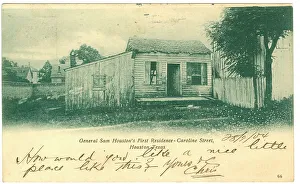 General Sam Houston's First Residence - Caroline Street,
Houston, Texas
How would you like a nice little
peace like this? Yours
Chris